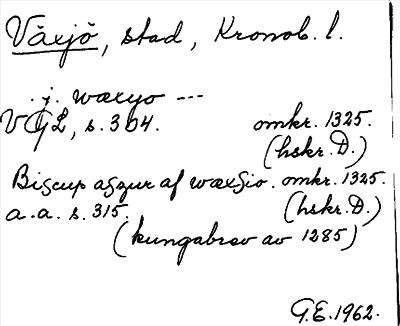 Växjö, stad, Kronob. l.
.j. wæxyo ---
VGL, s. 304. omkr. 1325.
(hskr. D.)
Biscup aszur af wæxsio. omkr. 1325.
a.a. s. 315. (hskr. D.)
(kungabrev av 1285)
G.E. 1962.